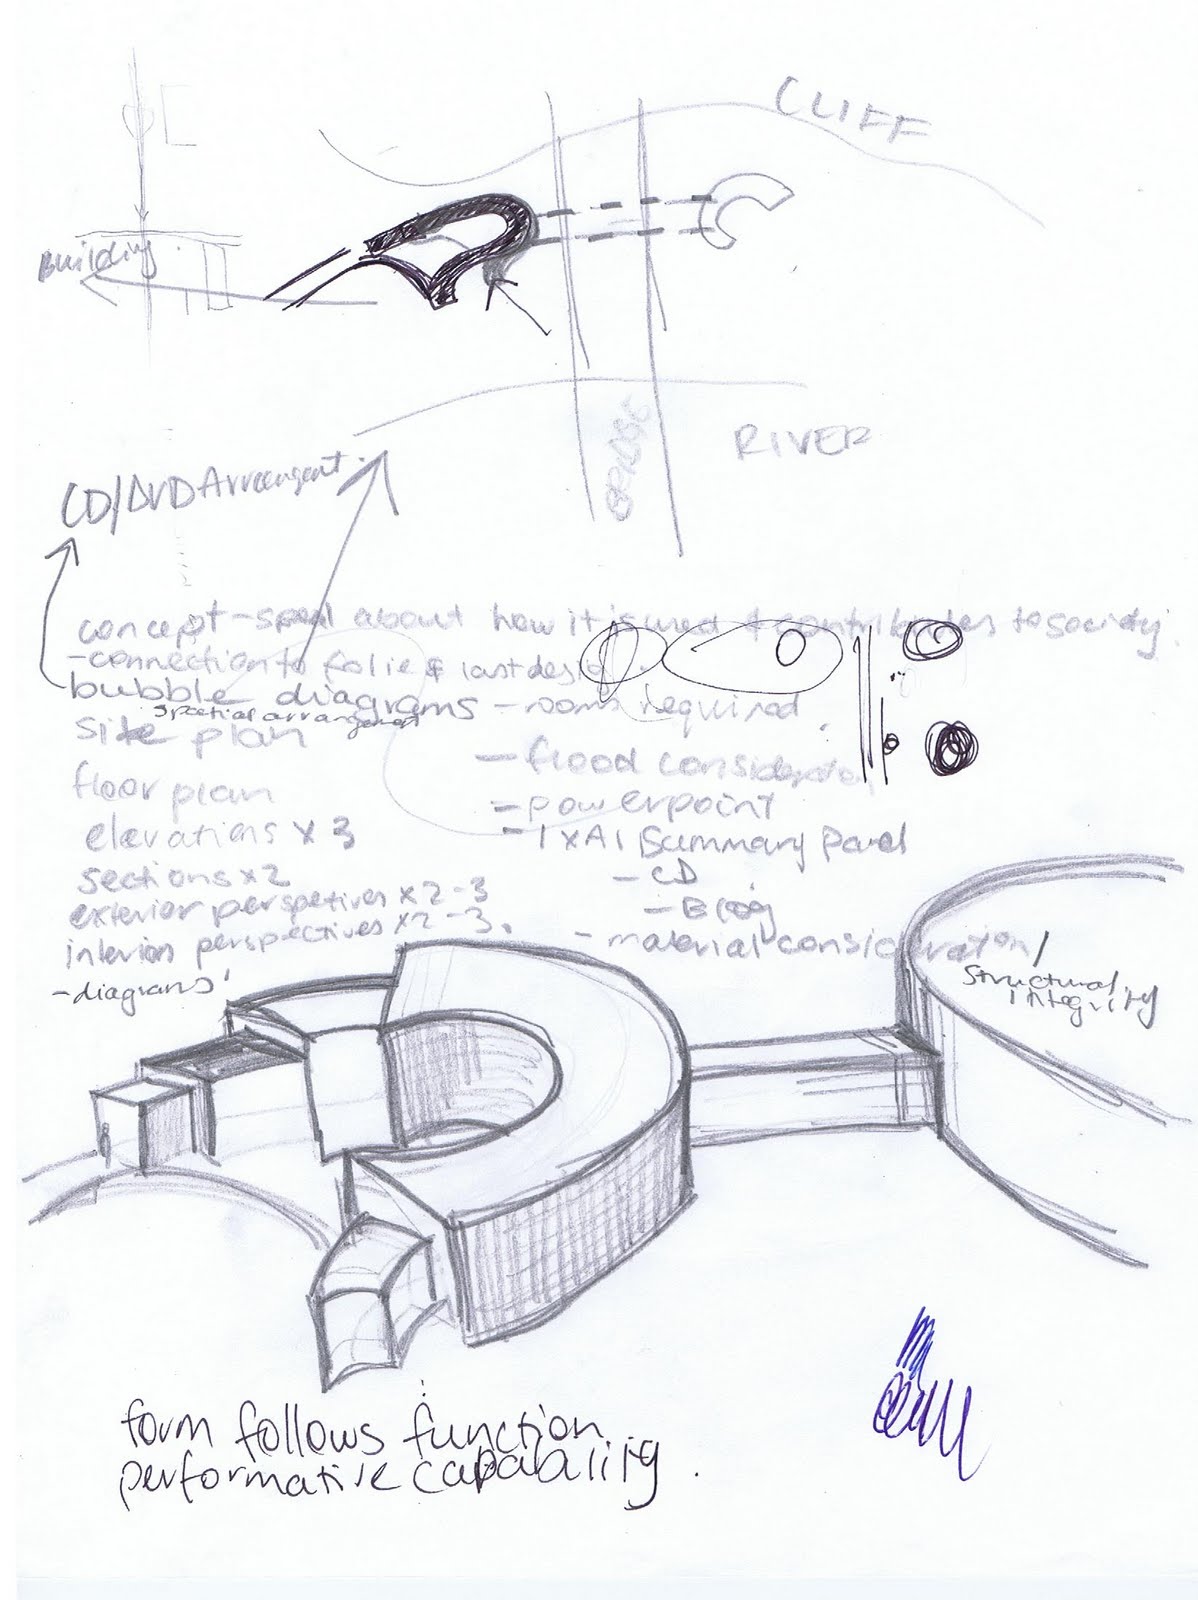 CLIFF
Building
RIVER
BRIDGE
CD/DVD Arrangent
concept - speal about how it is used & contributes to society.
- connection to folie & last design.
bubble diagrams - rooms required.
spactial arrangement
site plan
- flood consideration
floor plan
- powerpoint
elevations x 3
- 1 x A1 Summary Panel
sections x 2
- CD
exterior perspetives x 2-3
- Blog
interior perspectives x 2-3.
- material consideration/
structural integrity
- diagrams
form follows function
performative capability.